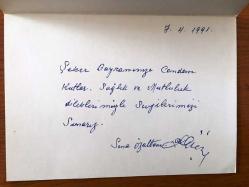 7.4.1991.
Şeker Bayramınızı Candan
Kutlar. Sağlık ve Mutluluk
dileklerimizle Sevgilerimizi
Sunarız.
Sena